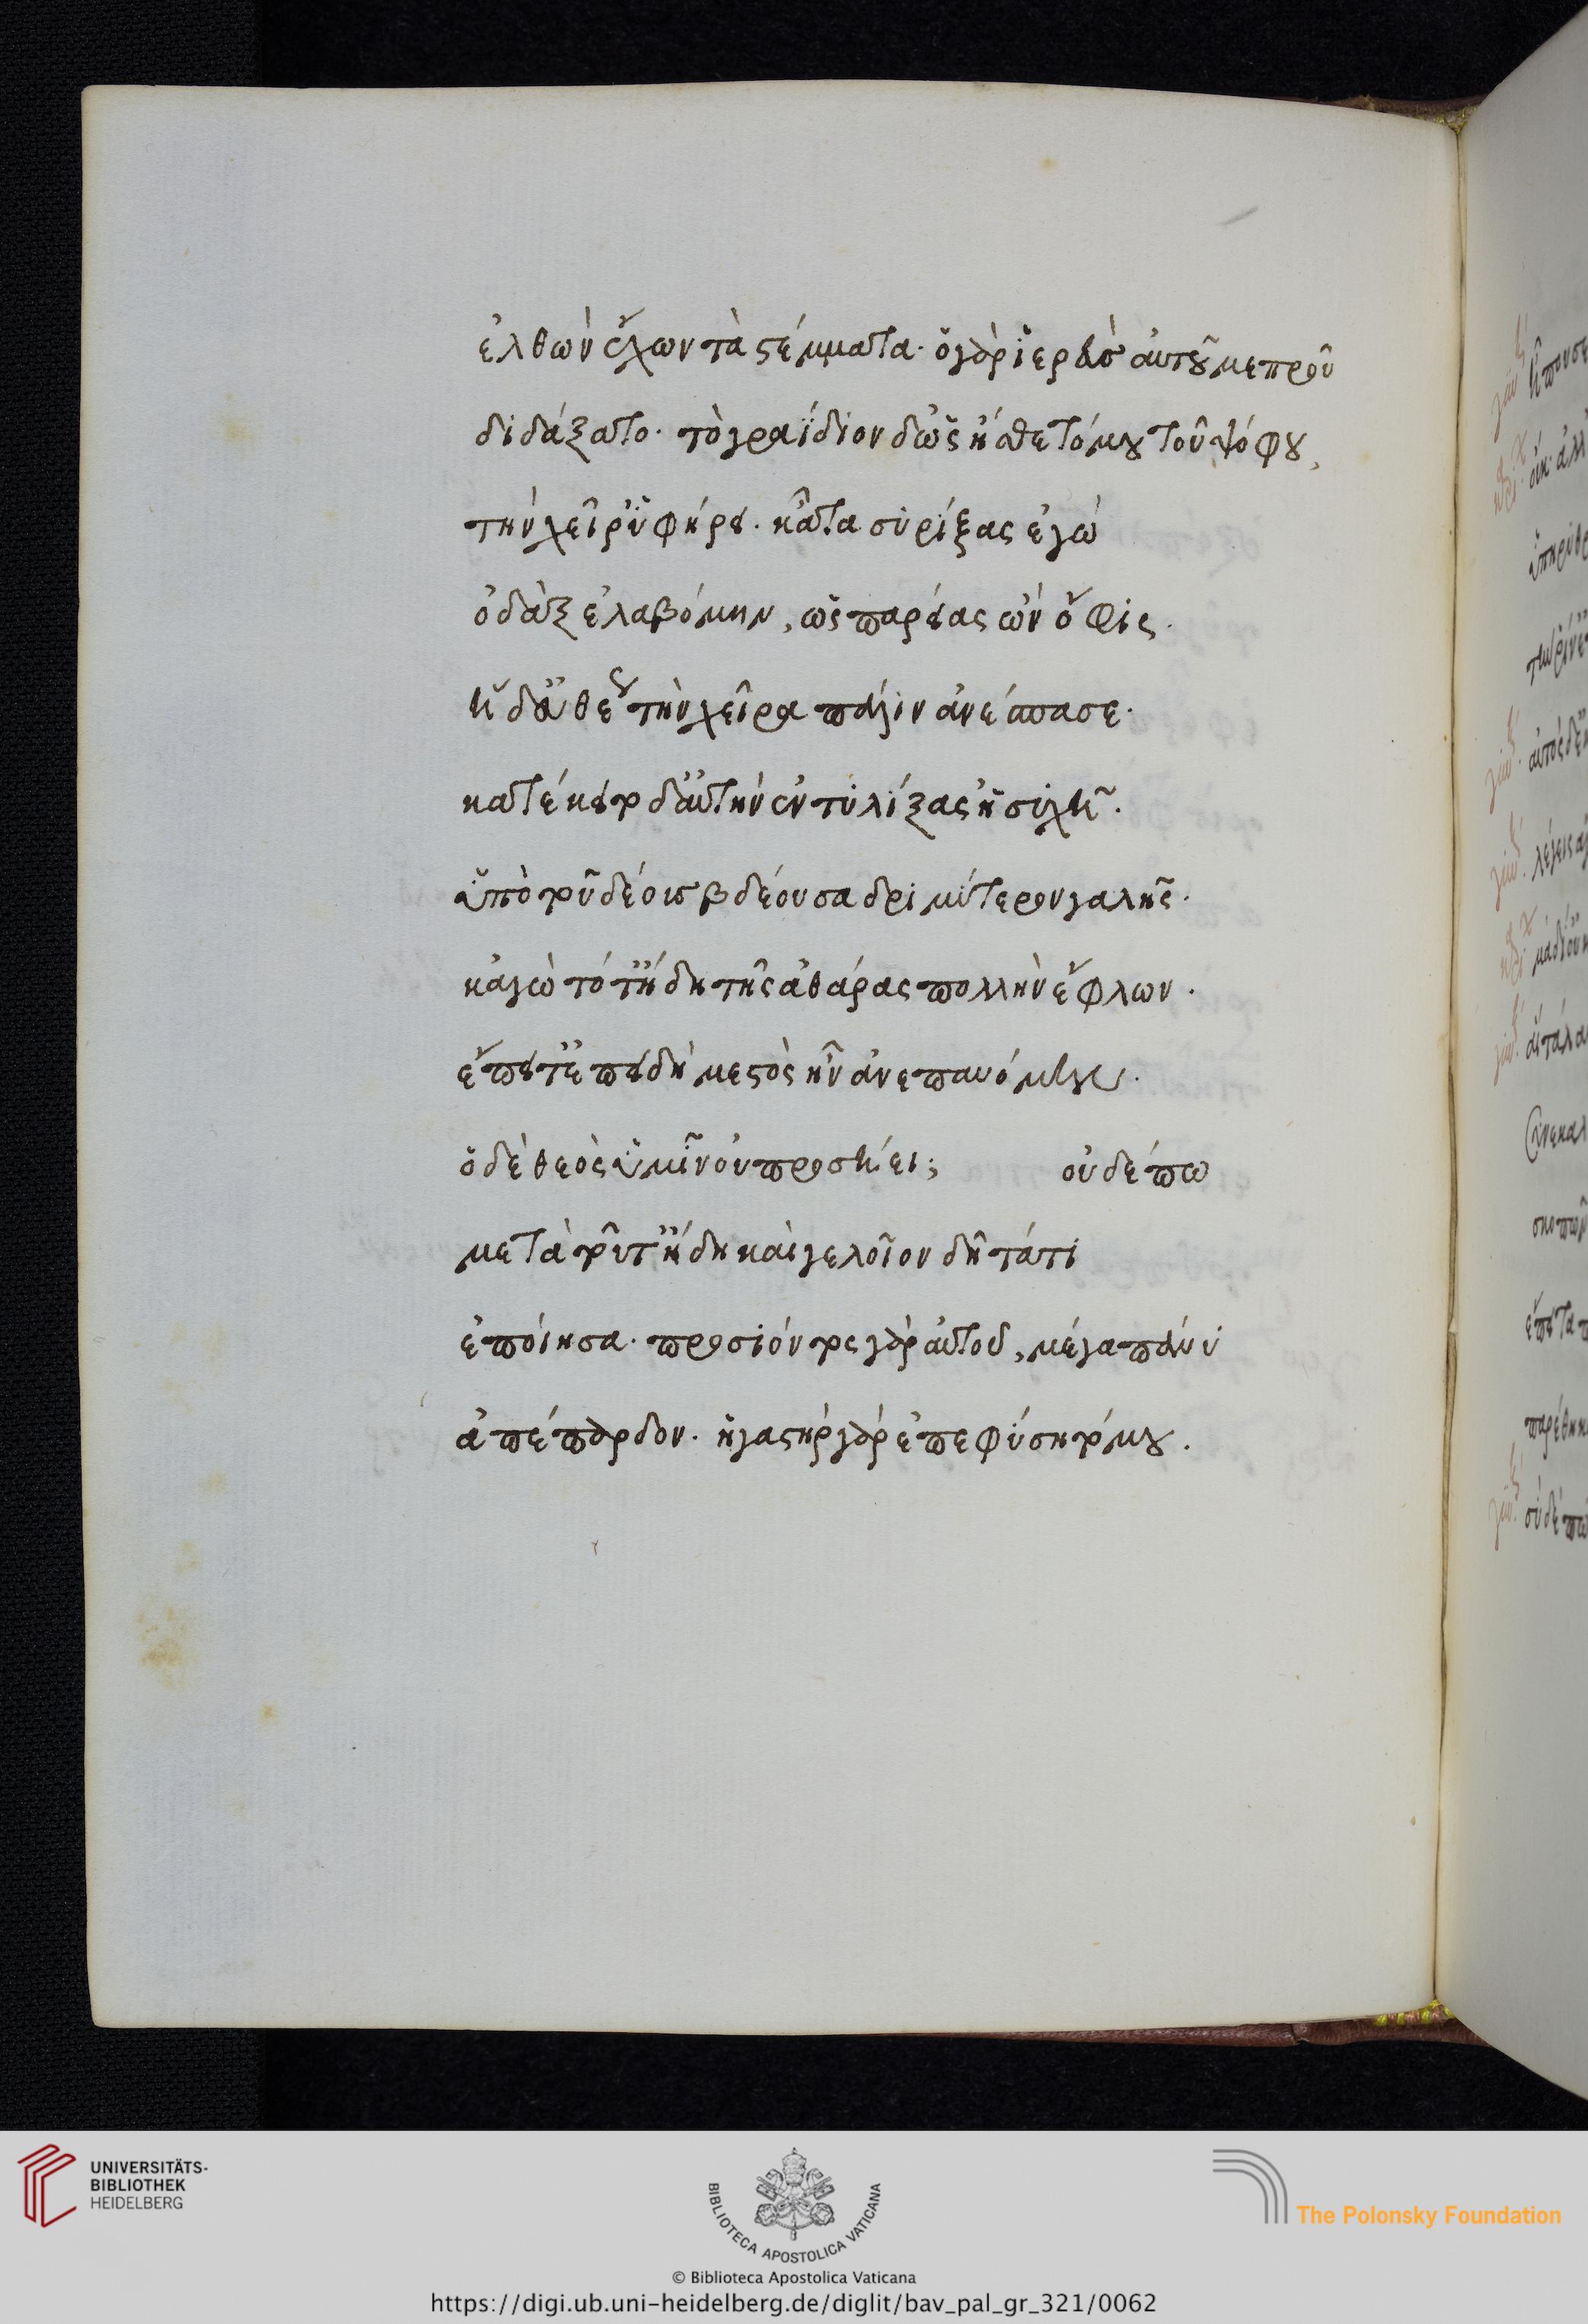 ἐλθὼν ἔχων τὰ στέμματα· ὁ γὰρ ἱερεὺς αὐτοῦ με προῦ
διδάξατο· τὸ γραΐδιον δ' ὡς ἤσθετό μου τοῦ ψόφου,
τὴν χεῖρ' ὑφήρει. κᾆτα συρίξας ἐγὼ
ὀδὰξ ἐλαβόμην, ὡς παρείας ὢν ὄφις.
ἡ δ' εὐθέως τὴν χεῖρα πάλιν ἀνέσπασε·
κατέκειτο δ' αὐτὴν ἐντυλίξασ' ἡσυχῆ.
ὑπὸ τοῦ δέους βδέουσα δριμύτερον γαλῆς·
κἀγὼ τότ' ἤδη τῆς ἀθάρας πολλὴν ἔφλων.
ἔπειτ' ἐπειδὴ μεστὸς ἦν ἀνεπαυόμην.
ὁ δὲ θεὸς ὑμῖν οὐ προσήει; οὐδέπω
μετὰ τοῦτ' ἤδη καὶ γελοῖον δῆτά τι
ἐποίησα· προσιόντος γὰρ αὐτοῦ, μέγα πάνυ
ἀπέπαρδον. ἡ γαστὴρ γὰρ ἐπεφύσητό μου.
UNIVERSITÄTS-
BIBLIOTHEK
HEIDELBERG
BIBLIOTECA APOSTOLICA VATICANA
The Polonsky Foundation
© Biblioteca Apostolica Vaticana
https://digi.ub.uni-heidelberg.de/diglit/bav_pal_gr_321/0062